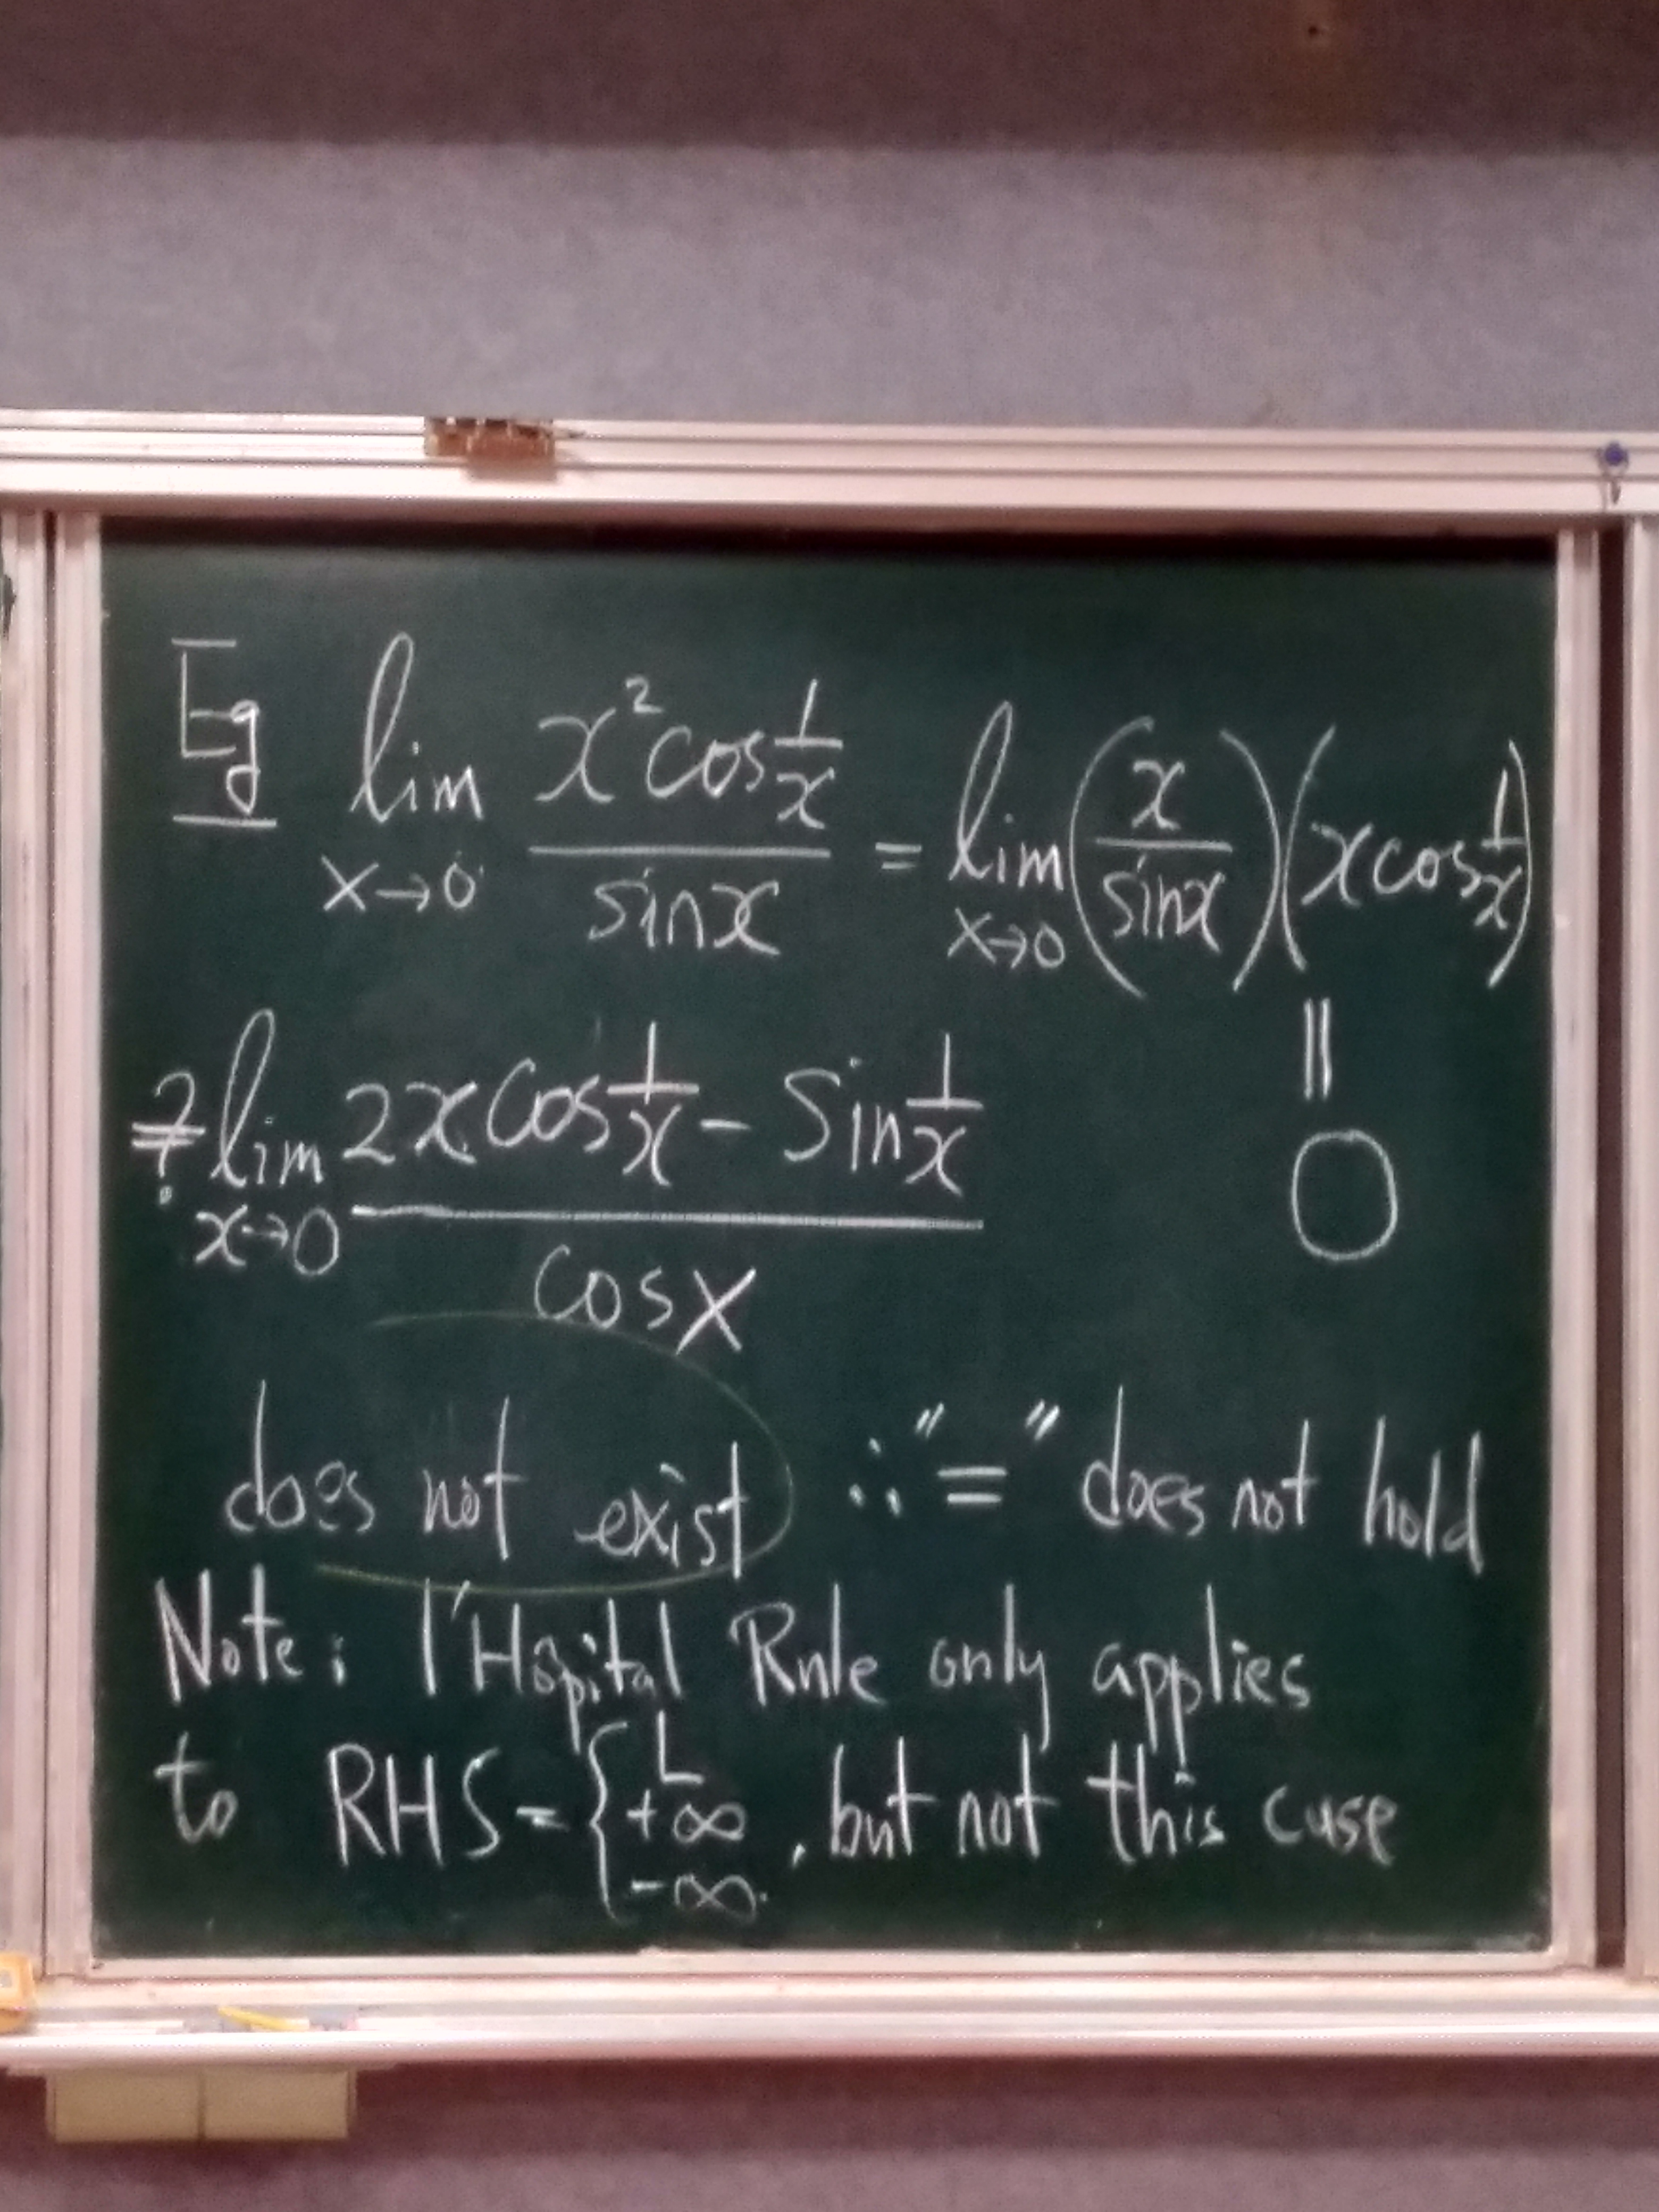 Eg lim x→0 x² cos 1/x / sinx = lim x→0 (x / sinx)(x cos 1/x)
= 0
≟ lim x→0 2x cos 1/x - Sin 1/x / cosx
does not exist ∴ "=" does not hold
Note: l'Hôpital Rule only applies
to RHS = { L +∞ -∞. , but not this case